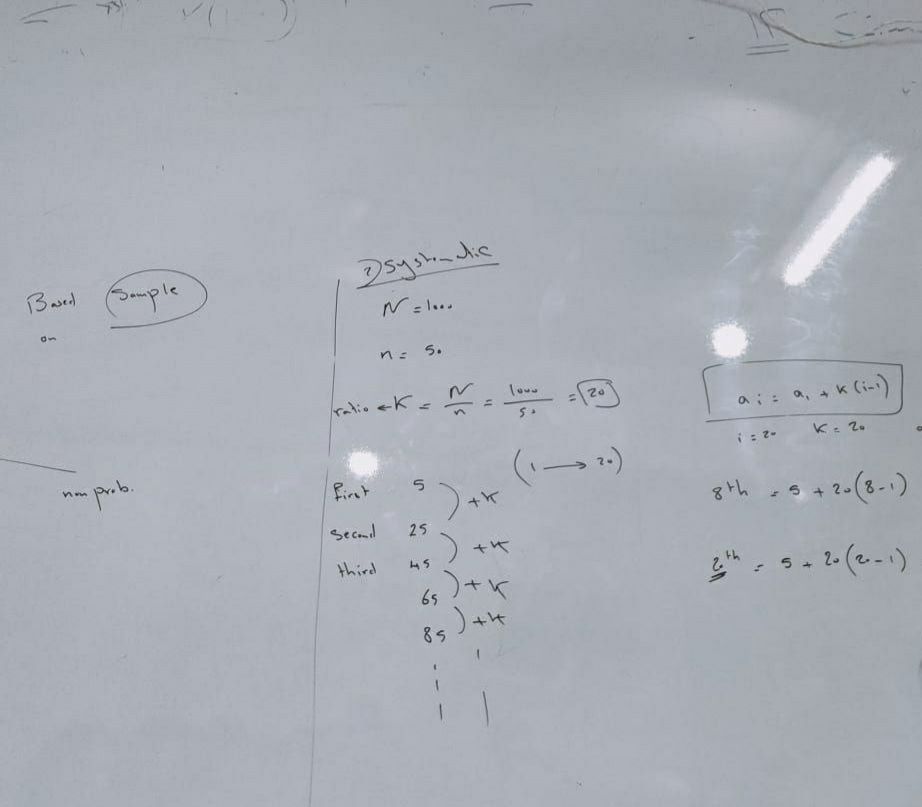 Based
on
Sample
non prob.
2) systematic
N = 1000
n = 50
ratio ← K = N/n = 1000/50 = 20
(1 → 20)
first 5 ) + K
second 25 ) + K
third 45 ) + K
65 ) + K
85
ai = a1 + K (i-1)
i = 20 K = 20
8th = 5 + 20 (8 - 1)
20th = 5 + 20 (20 - 1)